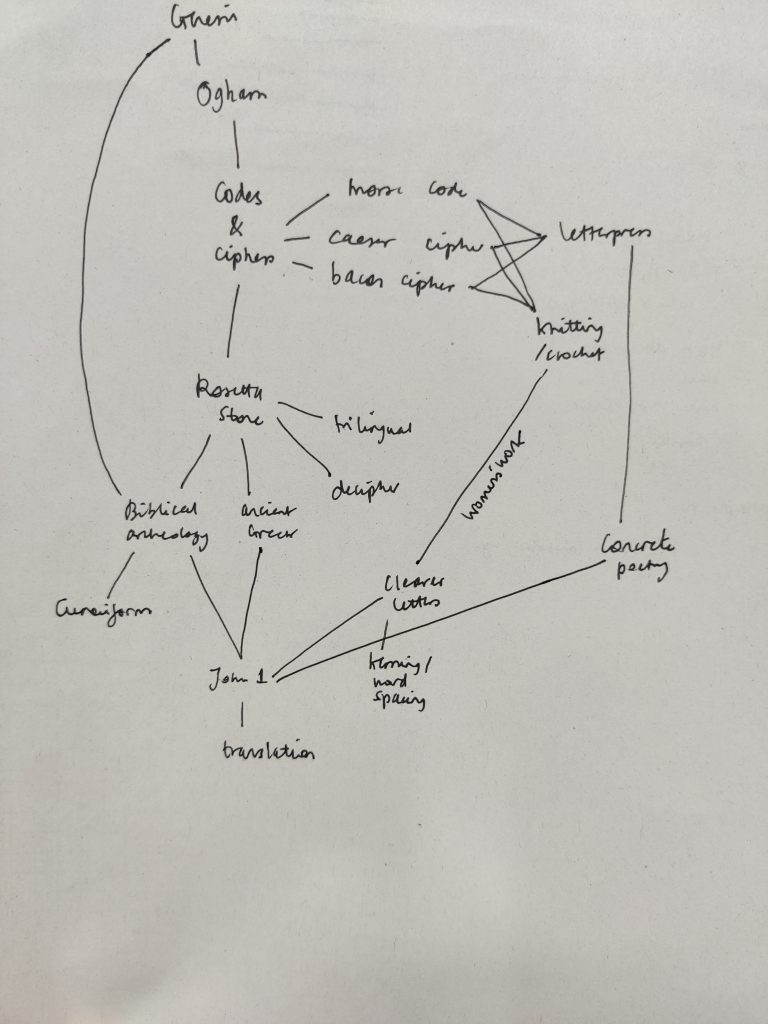 Ogham
Codes
&
Ciphers
morse code
caeser cipher
bacon cipher
letterpress
knitting
/crochet
Rosetta
Stone
trilingual
decipher
women's work
Biblical
archeology
ancient
Greek
Concrete
poetry
Cuneiform
Clearer
letters
kerning/
word
spacing
John 1
translation